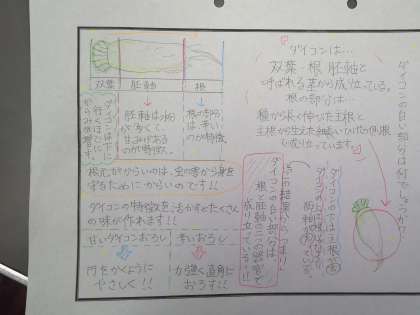 ダイコンの白い部分は何でしょうか?
ダイコンは…
双葉・根・胚軸と
呼ばれる茎から成り立っている。
根の部分は…
種から長く伸びた主根と
主根から生えた細いひげの側根
から成り立っています
双葉
胚軸
根
胚軸は水分
が多くて、
甘みがある
のが特徴。
根の部分
は辛い
のが特徴。
ダイコンは下に
行くほど
からみが増す
根元がからいのは、虫の害から身を
守るためにからいのです!!
ダイコンの特徴を活かすとたくさん
の味が作れます!!
甘いダイコンおろし
辛いおろし
円をかくように
やさしく!!
力強く直角に
おろす!!
ダイコンの下は主根
ダイコンの白い部分は
根と胚軸の二つの器官で
成り立っている!!